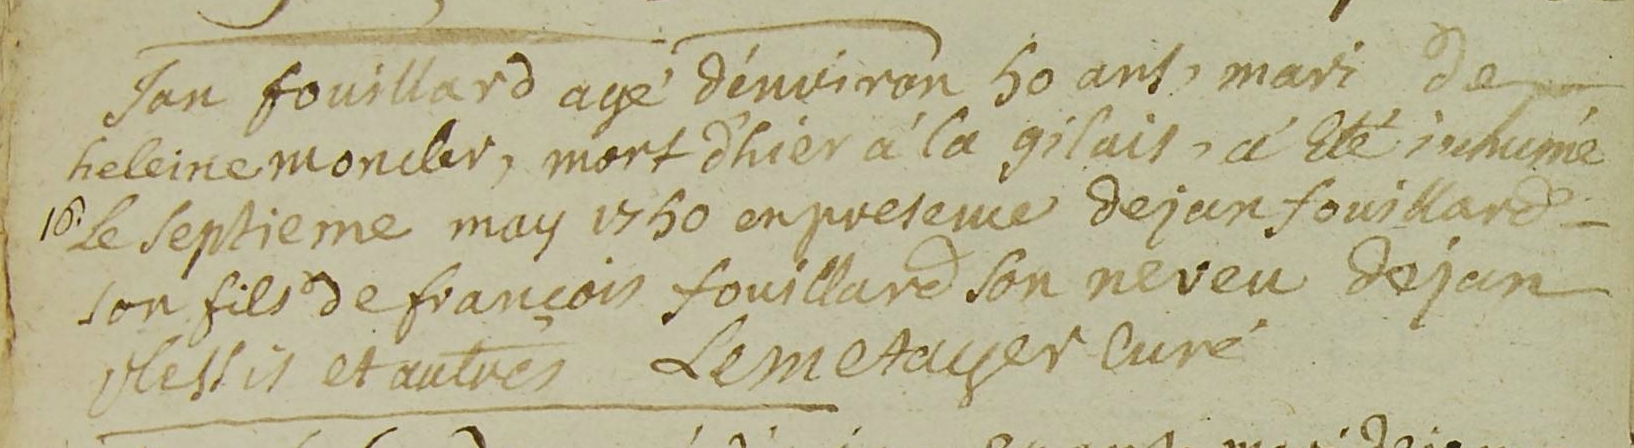 Jan fouillard agé d'environ 50 ans, mari de
heleine moncler, mort d'hier á la gilais, á Eté inhumé
16. Le septieme may 1750 en presence de jan fouillard
son fils de françois fouillard son neveu de jan
plessis et autres Lemetayer Curé